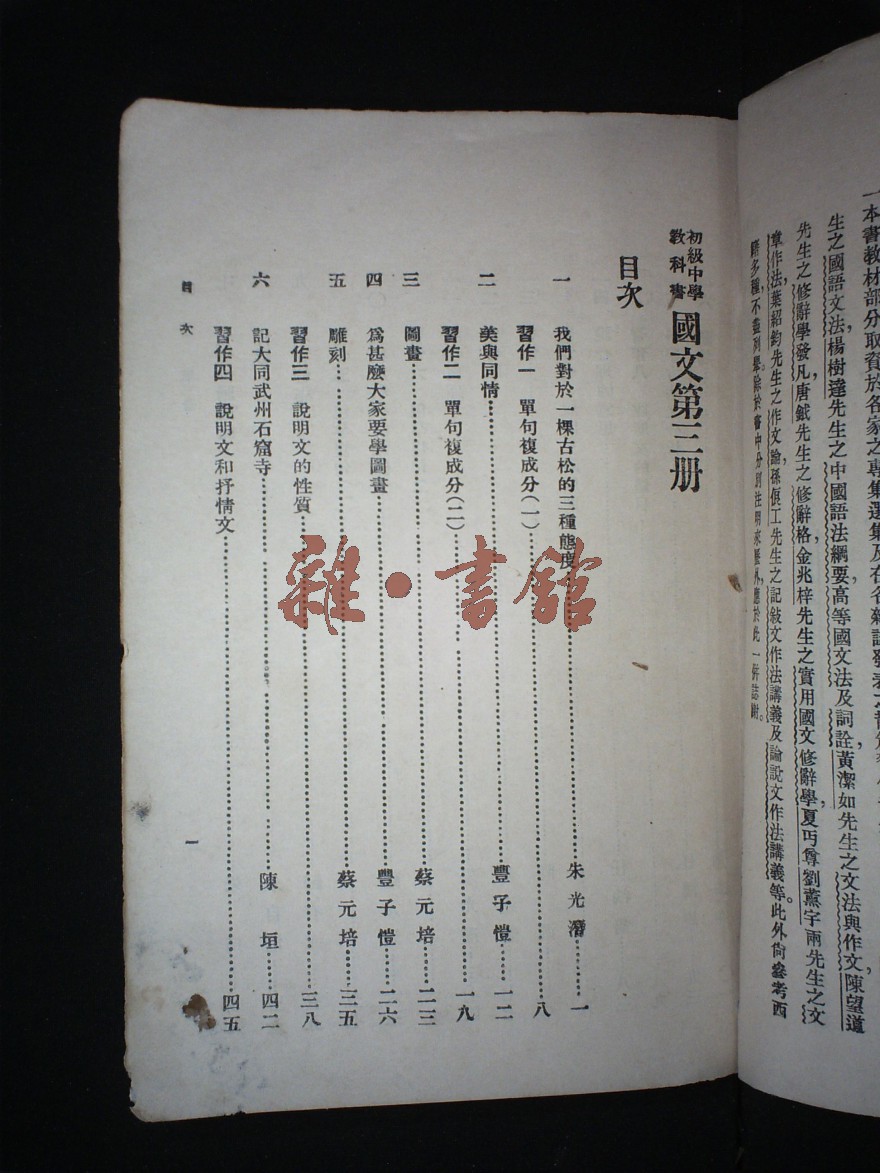 一本書教材部分取資於各家之專集選集及在各雜誌發表之
生之國語文法,楊樹達先生之中國語法綱要,高等國文法及詞詮,黃潔如先生之文法與作文,陳望道
先生之修辭學發凡,唐鉞先生之修辭格,金兆梓先生之實用國文修辭學,夏丏尊劉薰宇兩先生之文
章作法,葉紹鈞先生之作文論,孫俍工先生之記敍文作法講義及論說文作法講義等。此外尙參考西
籍多種,不盡列舉。除於書中分別注明來歷外,應於此一併誌謝。
初級中學
教科書
國文第三册
目次
一 我們對於一棵古松的三種態度……朱光潛……一
習作一 單句複成分(一)……八
二 美與同情……豐子愷……一二
習作二 單句複成分(二)……一九
三 圖畫……蔡元培……二三
四 爲甚麽大家要學圖畫……豐子愷……二六
五 雕刻……蔡元培……三五
習作三 說明文的性質……三八
六 記大同武州石窟寺……陳垣……四二
習作四 說明文和抒情文……四五
目次 一
雜·書館